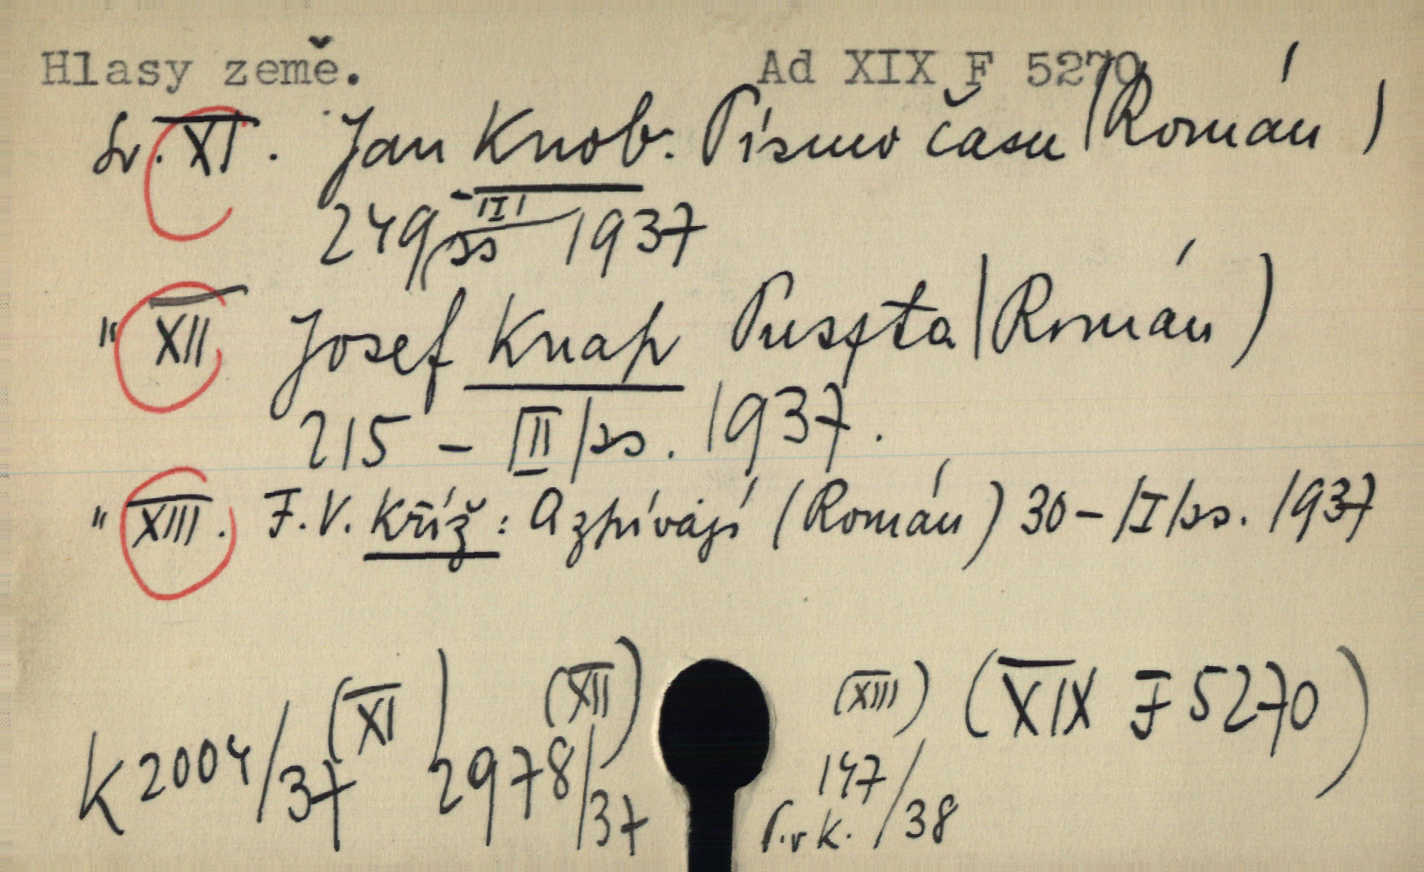 Hlasy země. Ad XIX F 5270
Sv. XI. Jan Knob. Písmo času (Román)
249 - |I| ss 1937
" XII Josef Knap Puszta (Román)
215 - |II| ss. 1937.
" XIII. F. V. Kříž: A zpívají (Román) 30 - |I| ss. 1937
(XI) (XII) (XIII) (XIX F 5270)
K 2004/37 2978/37 147/38